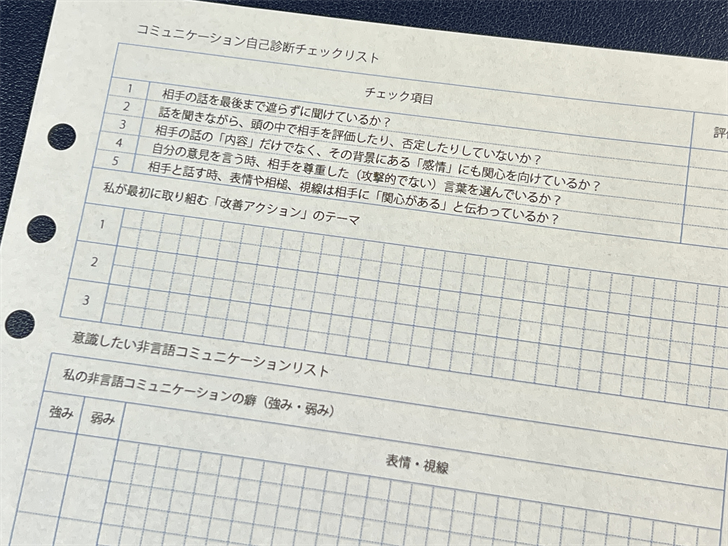 コミュニケーション自己診断チェックリスト
チェック項目
1 相手の話を最後まで遮らずに聞けているか？
2 話を聞きながら、頭の中で相手を評価したり、否定したりしていないか？
3 相手の話の「内容」だけでなく、その背景にある「感情」にも関心を向けているか？
4 自分の意見を言う時、相手を尊重した（攻撃的でない）言葉を選んでいるか？
5 相手と話す時、表情や相槌、視線は相手に「関心がある」と伝わっているか？
私が最初に取り組む「改善アクション」のテーマ
1
2
3
意識したい非言語コミュニケーションリスト
私の非言語コミュニケーションの癖（強み・弱み）
強み 弱み
表情・視線